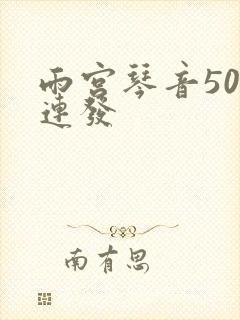 雨宮琴音50
連發
南有思